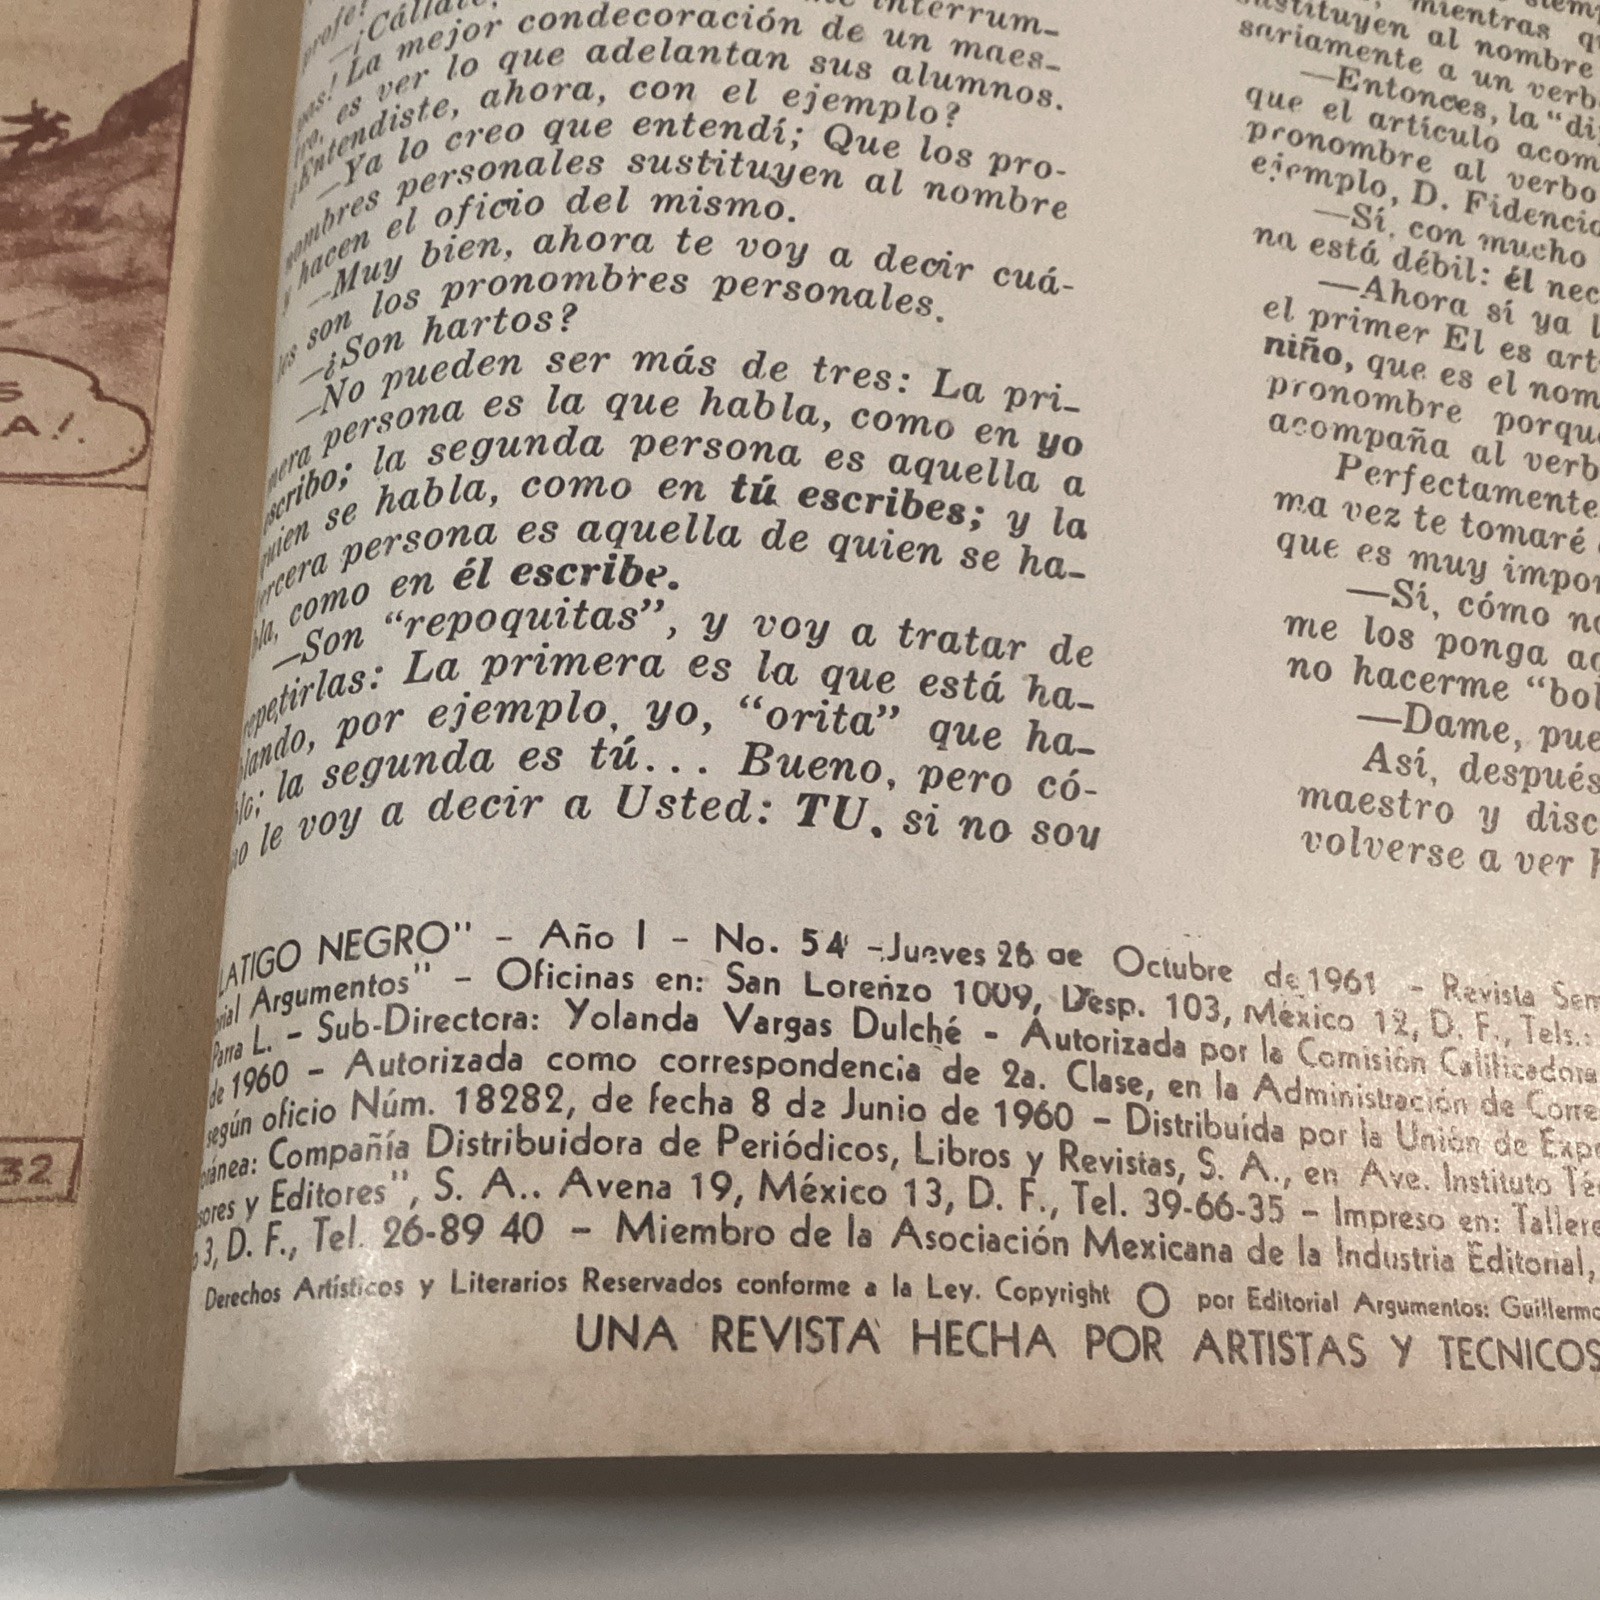 S
A!.
32
profe!
—¡Cállate,
interrum-
pas! La mejor condecoración de un maes-
tro, es ver lo que adelantan sus alumnos.
¿Entendiste, ahora, con el ejemplo?
—Ya lo creo que entendí; Que los pro-
nombres personales sustituyen al nombre
y hacen el oficio del mismo.
—Muy bien, ahora te voy a decir cuá-
les son los pronombres personales.
—¿Son hartos?
—No pueden ser más de tres: La pri-
mera persona es la que habla, como en yo
escribo; la segunda persona es aquella a
quien se habla, como en tú escribes; y la
tercera persona es aquella de quien se ha-
bla, como en él escribe.
—Son "repoquitas", y voy a tratar de
repetirlas: La primera es la que está ha-
blando, por ejemplo, yo, "orita" que ha-
blo; la segunda es tú... Bueno, pero có-
mo le voy a decir a Usted: TU. si no soy
mientras
sustituyen al nombre
sariamente a un verb
—Entonces, la "di
que el artículo acom
pronombre al verbo
ejemplo, D. Fidencio
—Sí, con mucho
na está débil: él nec
—Ahora sí ya l
el primer El es art
niño, que es el nom
pronombre porqu
acompaña al verb
Perfectamente
ma vez te tomaré
que es muy impor
—Sí, cómo no
me los ponga
no hacerme "bol
—Dame, pue
Así, después
maestro y disc
volverse a ver
LATIGO NEGRO" - Año I - No. 54 -Jueves 26 de Octubre de 1961 - Revista Sem
rial Argumentos" - Oficinas en: San Lorenzo 1009, Desp. 103, México 12, D. F., Tels.:
Parra L. - Sub-Directora: Yolanda Vargas Dulché - Autorizada por la Comisión Calificadora
de 1960 - Autorizada como correspondencia de 2a. Clase, en la Administración de Corre
según oficio Núm. 18282, de fecha 8 de Junio de 1960 - Distribuida por la Unión de Expe
oránea: Compañía Distribuidora de Periódicos, Libros y Revistas, S. A., en Ave. Instituto Té
sores y Editores", S. A.. Avena 19, México 13, D. F., Tel. 39-66-35 - Impreso en: Tallere
o 3, D. F., Tel. 26-89 40 - Miembro de la Asociación Mexicana de la Industria Editorial,
Derechos Artísticos y Literarios Reservados conforme a la Ley. Copyright O por Editorial Argumentos: Guillermo
UNA REVISTA HECHA POR ARTISTAS Y TECNICOS